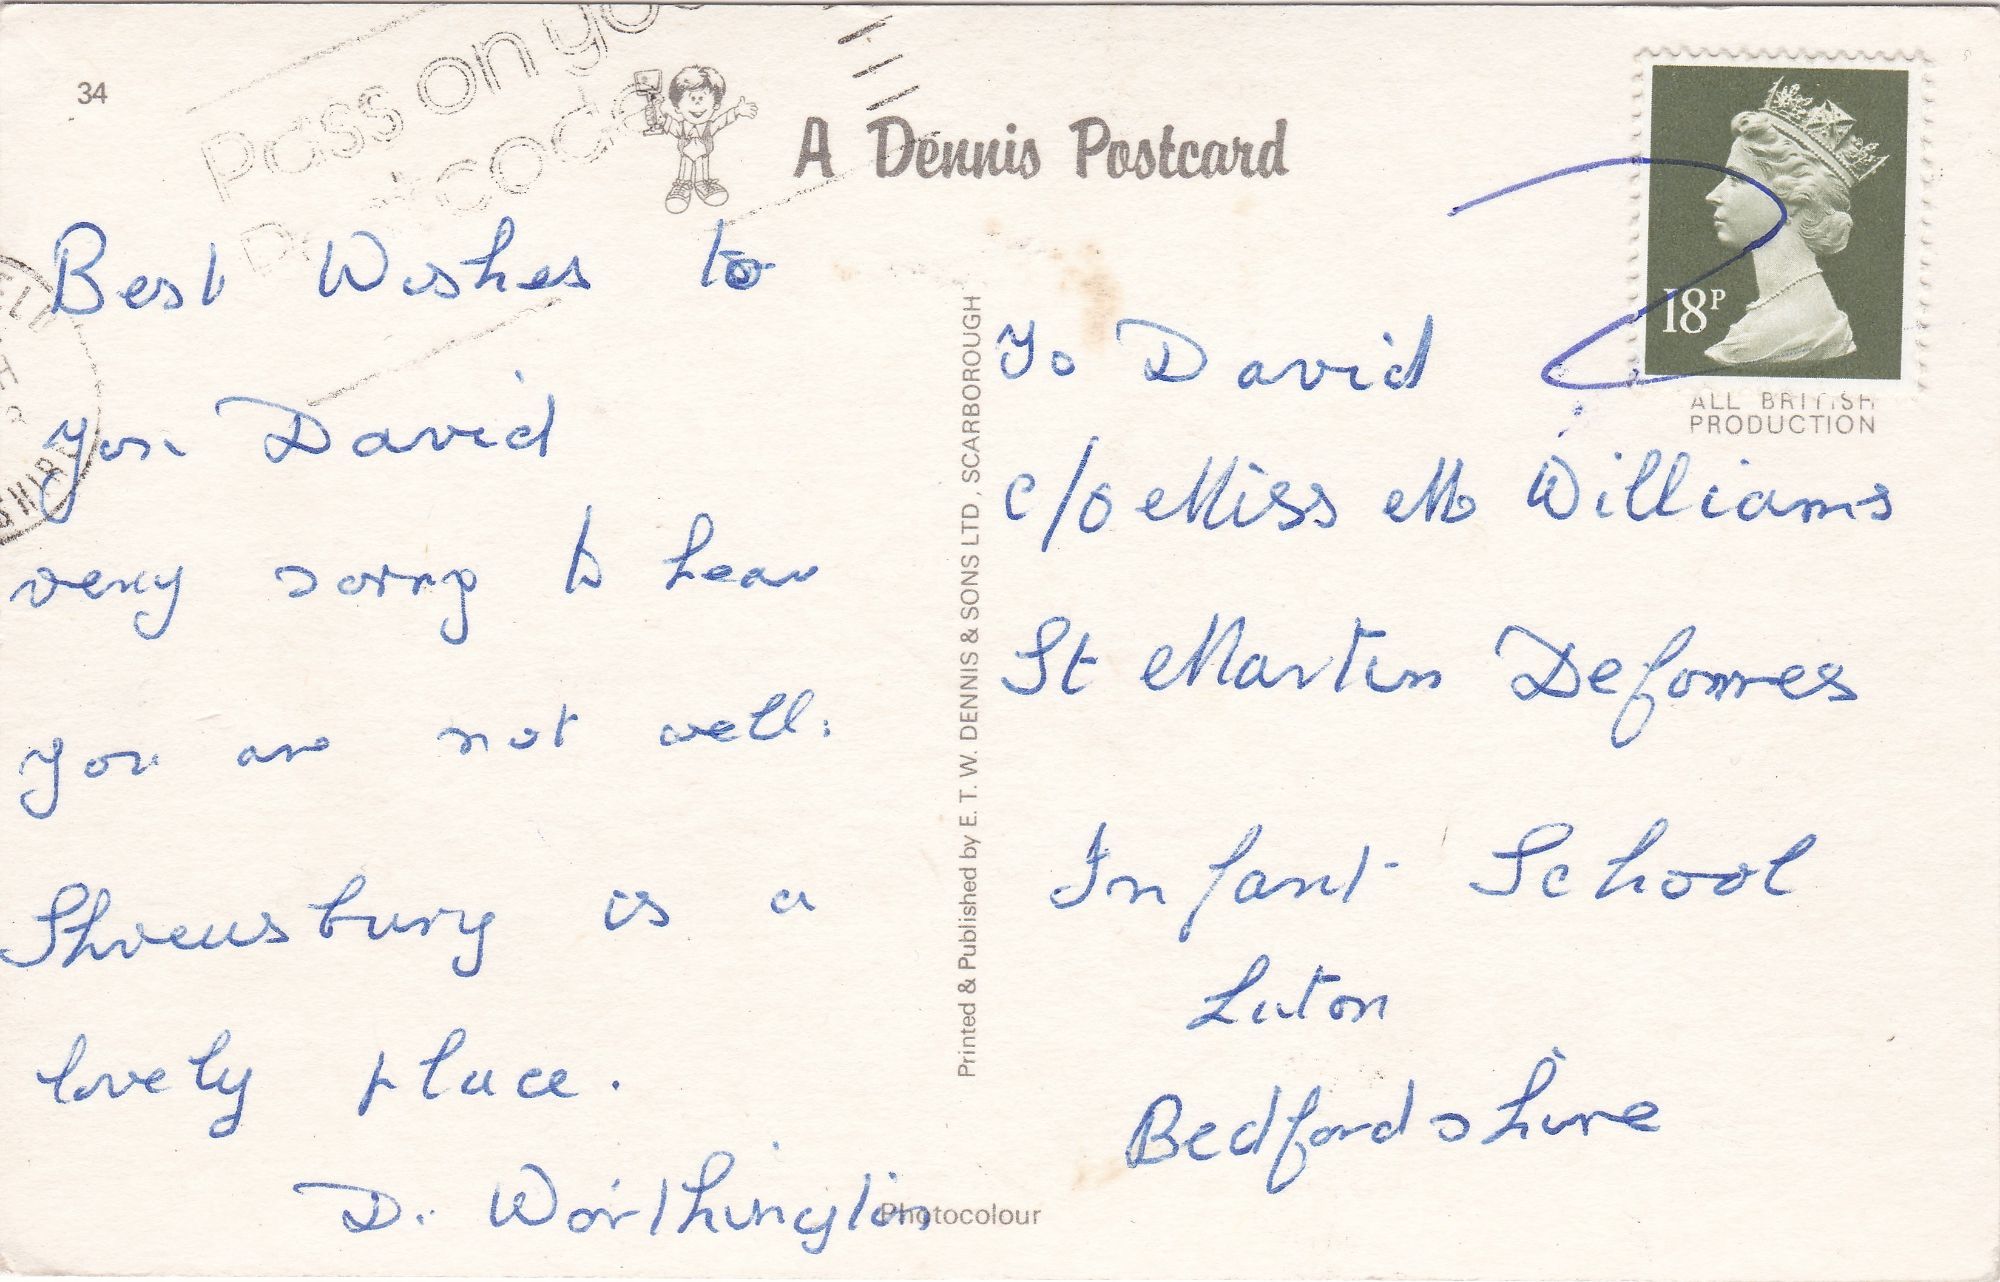 34
Pass on your
Postcode
A Dennis Postcard
18P
ALL BRITISH
PRODUCTION
Best Wishes to
you David
very sorry to hear
you are not well.
Shrewsbury is a
lovely place.
D. Worthington
Printed & Published by E. T. W. DENNIS & SONS LTD, SCARBOROUGH
Photocolour
To David
c/o Miss M Williams
St Martin Defomes
Infant School
Luton
Bedfordshire